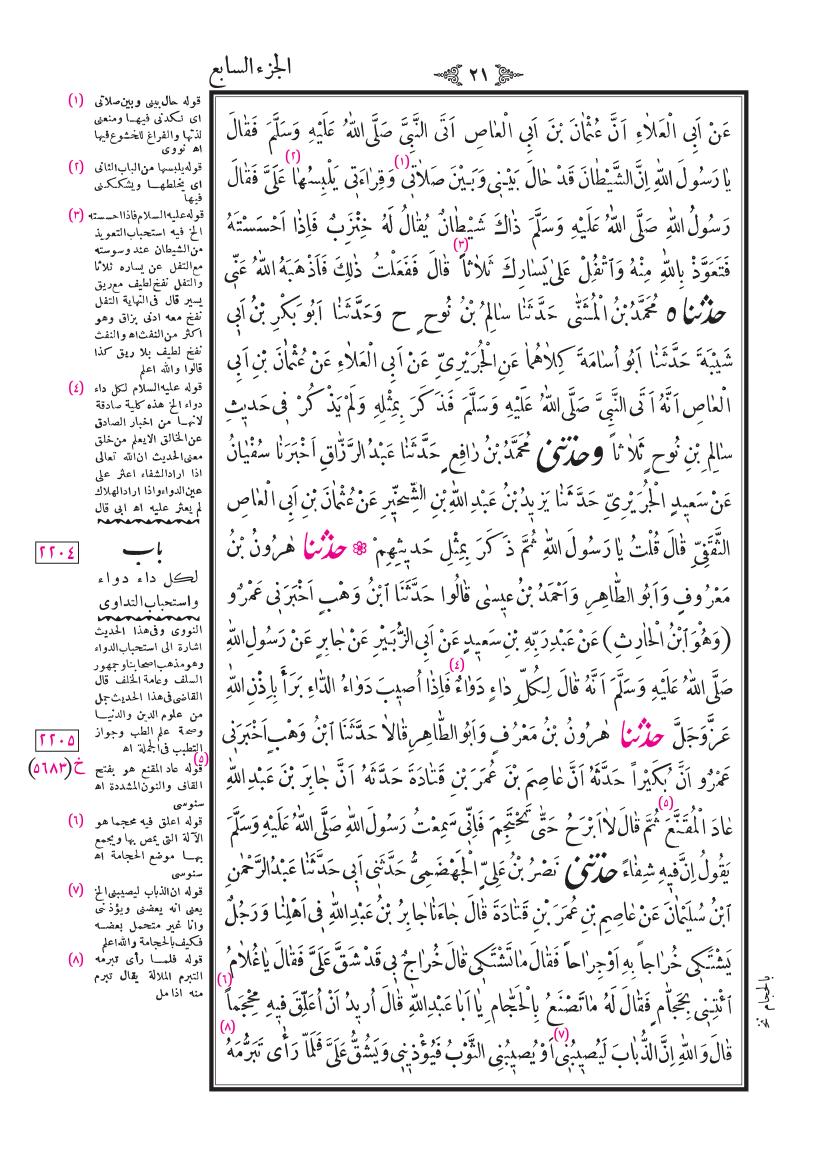 الجزء السابع
٢١
عَنْ اَبِى الْعَلَاءِ اَنَّ عُثْمَانَ بْنَ اَبِى الْعَاصِ اَتَى النَّبِىَّ صَلَّى اللهُ عَلَيْهِ وَسَلَّمَ فَقَالَ
يَا رَسُولَ اللهِ اِنَّ الشَّيْطَانَ قَدْ حَالَ بَيْنِى وَبَيْنَ صَلَاتِى (١) وَقِرَاءَتِى يَلْبِسُهَا (٢) عَلَىَّ فَقَالَ
رَسُولُ اللهِ صَلَّى اللهُ عَلَيْهِ وَسَلَّمَ ذَاكَ شَيْطَانٌ يُقَالُ لَهُ خِنْزِبٌ فَاِذَا اَحْسَسْتَهُ
فَتَعَوَّذْ بِاللهِ مِنْهُ وَاتْفِلْ عَلَى يَسَارِكَ ثَلَاثاً (٣) قَالَ فَفَعَلْتُ ذٰلِكَ فَاَذْهَبَهُ اللهُ عَنِّى
حدثنا ٥ مُحَمَّدُ بْنُ الْمُثَنَّى حَدَّثَنَا سَالِمُ بْنُ نُوحٍ ح وَحَدَّثَنَا اَبُو بَكْرِ بْنُ اَبِى
شَيْبَةَ حَدَّثَنَا اَبُو اُسَامَةَ كِلَاهُمَا عَنِ الْجُرَيْرِىِّ عَنْ اَبِى الْعَلَاءِ عَنْ عُثْمَانَ بْنِ اَبِى
الْعَاصِ اَنَّهُ اَتَى النَّبِىَّ صَلَّى اللهُ عَلَيْهِ وَسَلَّمَ فَذَكَرَ بِمِثْلِهِ وَلَمْ يَذْكُرْ فِى حَدِيثِ
سَالِمِ بْنِ نُوحٍ ثَلَاثاً وحدثنى مُحَمَّدُ بْنُ رَافِعٍ حَدَّثَنَا عَبْدُ الرَّزَّاقِ اَخْبَرَنَا سُفْيَانُ
عَنْ سَعِيدٍ الْجُرَيْرِىِّ حَدَّثَنَا يَزِيدُ بْنُ عَبْدِ اللهِ بْنِ الشِّخِّيرِ عَنْ عُثْمَانَ بْنِ اَبِى الْعَاصِ
الثَّقَفِىِّ قَالَ قُلْتُ يَا رَسُولَ اللهِ ثُمَّ ذَكَرَ بِمِثْلِ حَدِيثِهِمْ ❁ حدثنا هٰرُونُ بْنُ
مَعْرُوفٍ وَاَبُو الطَّاهِرِ وَاَحْمَدُ بْنُ عِيسَى قَالُوا حَدَّثَنَا ابْنُ وَهْبٍ اَخْبَرَنِى عَمْرٌو
(وَهُوَ ابْنُ الْحَارِثِ) عَنْ عَبْدِ رَبِّهِ بْنِ سَعِيدٍ عَنْ اَبِى الزُّبَيْرِ عَنْ جَابِرٍ عَنْ رَسُولِ اللهِ
صَلَّى اللهُ عَلَيْهِ وَسَلَّمَ اَنَّهُ قَالَ لِكُلِّ دَاءٍ دَوَاءٌ (٤) فَاِذَا اُصِيبَ دَوَاءُ الدَّاءِ بَرَأَ بِاِذْنِ اللهِ
عَزَّ وَجَلَّ حدثنا هٰرُونُ بْنُ مَعْرُوفٍ وَاَبُو الطَّاهِرِ قَالَا حَدَّثَنَا ابْنُ وَهْبٍ اَخْبَرَنِى
عَمْرٌو اَنَّ بُكَيْراً حَدَّثَهُ اَنَّ عَاصِمَ بْنَ عُمَرَ بْنِ قَتَادَةَ حَدَّثَهُ اَنَّ جَابِرَ بْنَ عَبْدِ اللهِ
عَادَ الْمُقَنَّعَ (٥) ثُمَّ قَالَ لَا اَبْرَحُ حَتَّى تَحْتَجِمَ فَاِنِّى سَمِعْتُ رَسُولَ اللهِ صَلَّى اللهُ عَلَيْهِ وَسَلَّمَ
يَقُولُ اِنَّ فِيهِ شِفَاءً حدثنى نَصْرُ بْنُ عَلِىٍّ الْجَهْضَمِىُّ حَدَّثَنِى اَبِى حَدَّثَنَا عَبْدُ الرَّحْمٰنِ
ابْنُ سُلَيْمَانَ عَنْ عَاصِمِ بْنِ عُمَرَ بْنِ قَتَادَةَ قَالَ جَاءَنَا جَابِرُ بْنُ عَبْدِ اللهِ فِى اَهْلِنَا وَرَجُلٌ
يَشْتَكِى خُرَاجاً بِهِ اَوْ جِرَاحاً فَقَالَ مَا تَشْتَكِى قَالَ خُرَاجٌ بِى قَدْ شَقَّ عَلَىَّ فَقَالَ يَا غُلَامُ
ائْتِنِى بِحَجَّامٍ فَقَالَ لَهُ مَا تَصْنَعُ بِالْحَجَّامِ يَا اَبَا عَبْدِ اللهِ قَالَ اُرِيدُ اَنْ اُعَلِّقَ فِيهِ مِحْجَماً (٦)
قَالَ وَاللهِ اِنَّ الذُّبَابَ لَيُصِيبُنِى (٧) اَوْ يُصِيبُنِى الثَّوْبُ فَيُؤْذِينِى وَيَشُقُّ عَلَىَّ فَلَمَّا رَأَى تَبَرُّمَهُ (٨)
(١) قوله حال بينى وبين صلاتى
اى نكدنى فيهـا ومنعنى
لذتها والفراغ للخشوع فيها
اه نووى
(٢) قوله يلبسها من الباب الثانى
اى يخلطهـا ويشككنى
فيها
(٣) قوله عليه السلام فاذا احسسته
الخ فيه استحباب التعويذ
من الشيطان عند وسوسته
مع التفل عن يساره ثلاثا
والتفل نفخ لطيف مع ريق
يسير قال فى النهاية التفل
نفخ معه ادنى بزاق وهو
اكثر من النفث اه والنفث
نفخ لطيف بلا ريق كذا
قالوا والله اعلم
(٤) قوله عليه السلام لكل داء
دواء الخ هذه كلية صادقة
لانهـا من اخبار الصادق
عن الخالق الا يعلم من خلق
معنى الحديث ان الله تعالى
اذا اراد الشفاء اعثر على
عين الدواء واذا اراد الهلاك
لم يعثر عليه اه ابى قال
٢٢٠٤
باب
لكل داء دواء
واستحباب التداوى
النووى وفى هذا الحديث
اشارة الى استحباب الدواء
وهو مذهب اصحابنا وجمهور
السلف وعامة الخلف قال
القاضى فى هذا الحديث جمل
من علوم الدين والدنيـا
وصحة علم الطب وجواز
التطبب فى الجملة اه
٢٢٠٥
خ (٥٦٨٣)
(٥) قوله عاد المقنع هو بفتح
القاف والنون المشددة اه
سنوسى
(٦) قوله اعلق فيه محجما هو
الآلة التى يمص بها ويجمع
بهـا موضع الحجامة اه
سنوسى
(٧) قوله ان الذباب ليصيبنى الخ
يعنى انه يعضنى ويؤذنى
وانا غير متحمل بعضـه
فكيف بالحجامة والله اعلم
(٨) قوله فلمـا رأى تبرمه
التبرم الملالة يقال تبرم
منه اذا مل
بالحجام نخ